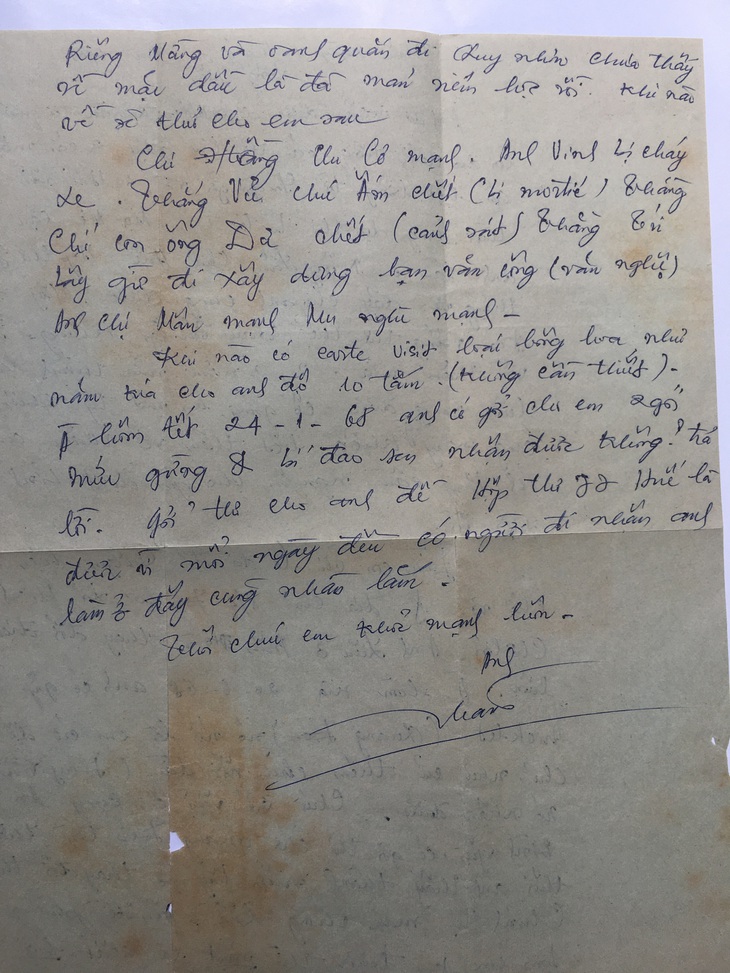 Riêng Mãng và oanh quấn đi Quy nhơn chưa thấy
về mặc dầu là đã mãn niên học rồi. Khi nào
về sẽ thư cho em sau
Chú thím Cô mạnh. Anh Vinh bị cháy
xe. Thằng Vũ chú Ấm chết (bị mortié) Thằng
Chí con ông Dả chết (cảnh sát) Thằng Tí
bây giờ đi xây dựng ban văn công (văn nghệ)
Anh chị Mân mạnh Mụ nghĩa mạnh –
Khi nào có carte visit loại bông hoa như
năm xưa cho anh độ 10 tấm. (không cần thiết) –
À hôm tết 24-1-68 anh có gởi cho em 2 gói
mứt gừng & bí đao em nhận được không? trả
lời. gởi thư cho anh đề Hộp thư 77 Huế là
được vì mỗi ngày đều có người đi nhận anh
làm ở đây cũng nhàn lắm.
Thôi chúc em khỏe mạnh luôn –
Anh